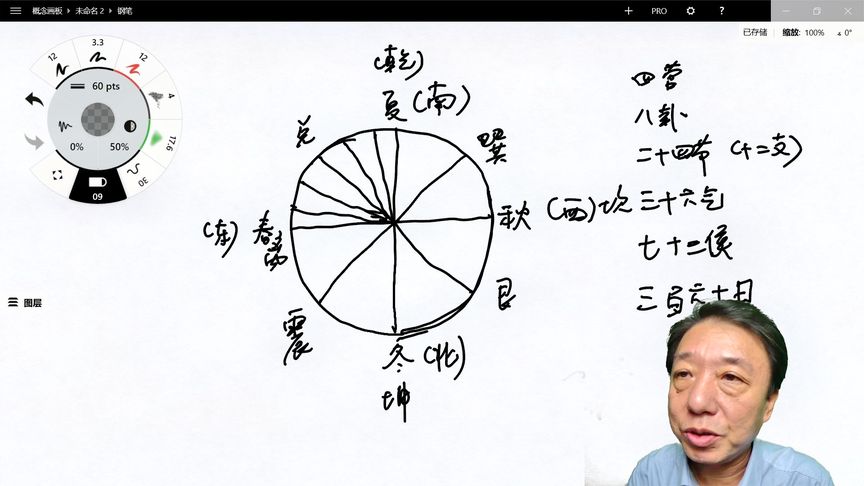 概念画板 ▸ 未命名 2 ▸ 钢笔
PRO
?
已存储
缩放: 100%
0°
3.3
12
12
4
60 pts
0%
50%
17.6
30
60
图层
(乾)
夏(南)
兑
巽
(东)
春
离
秋
(西)坎
震
艮
冬(北)
坤
四营
八卦
二十四节(十二支)
三十六气
七十二候
三百六十日